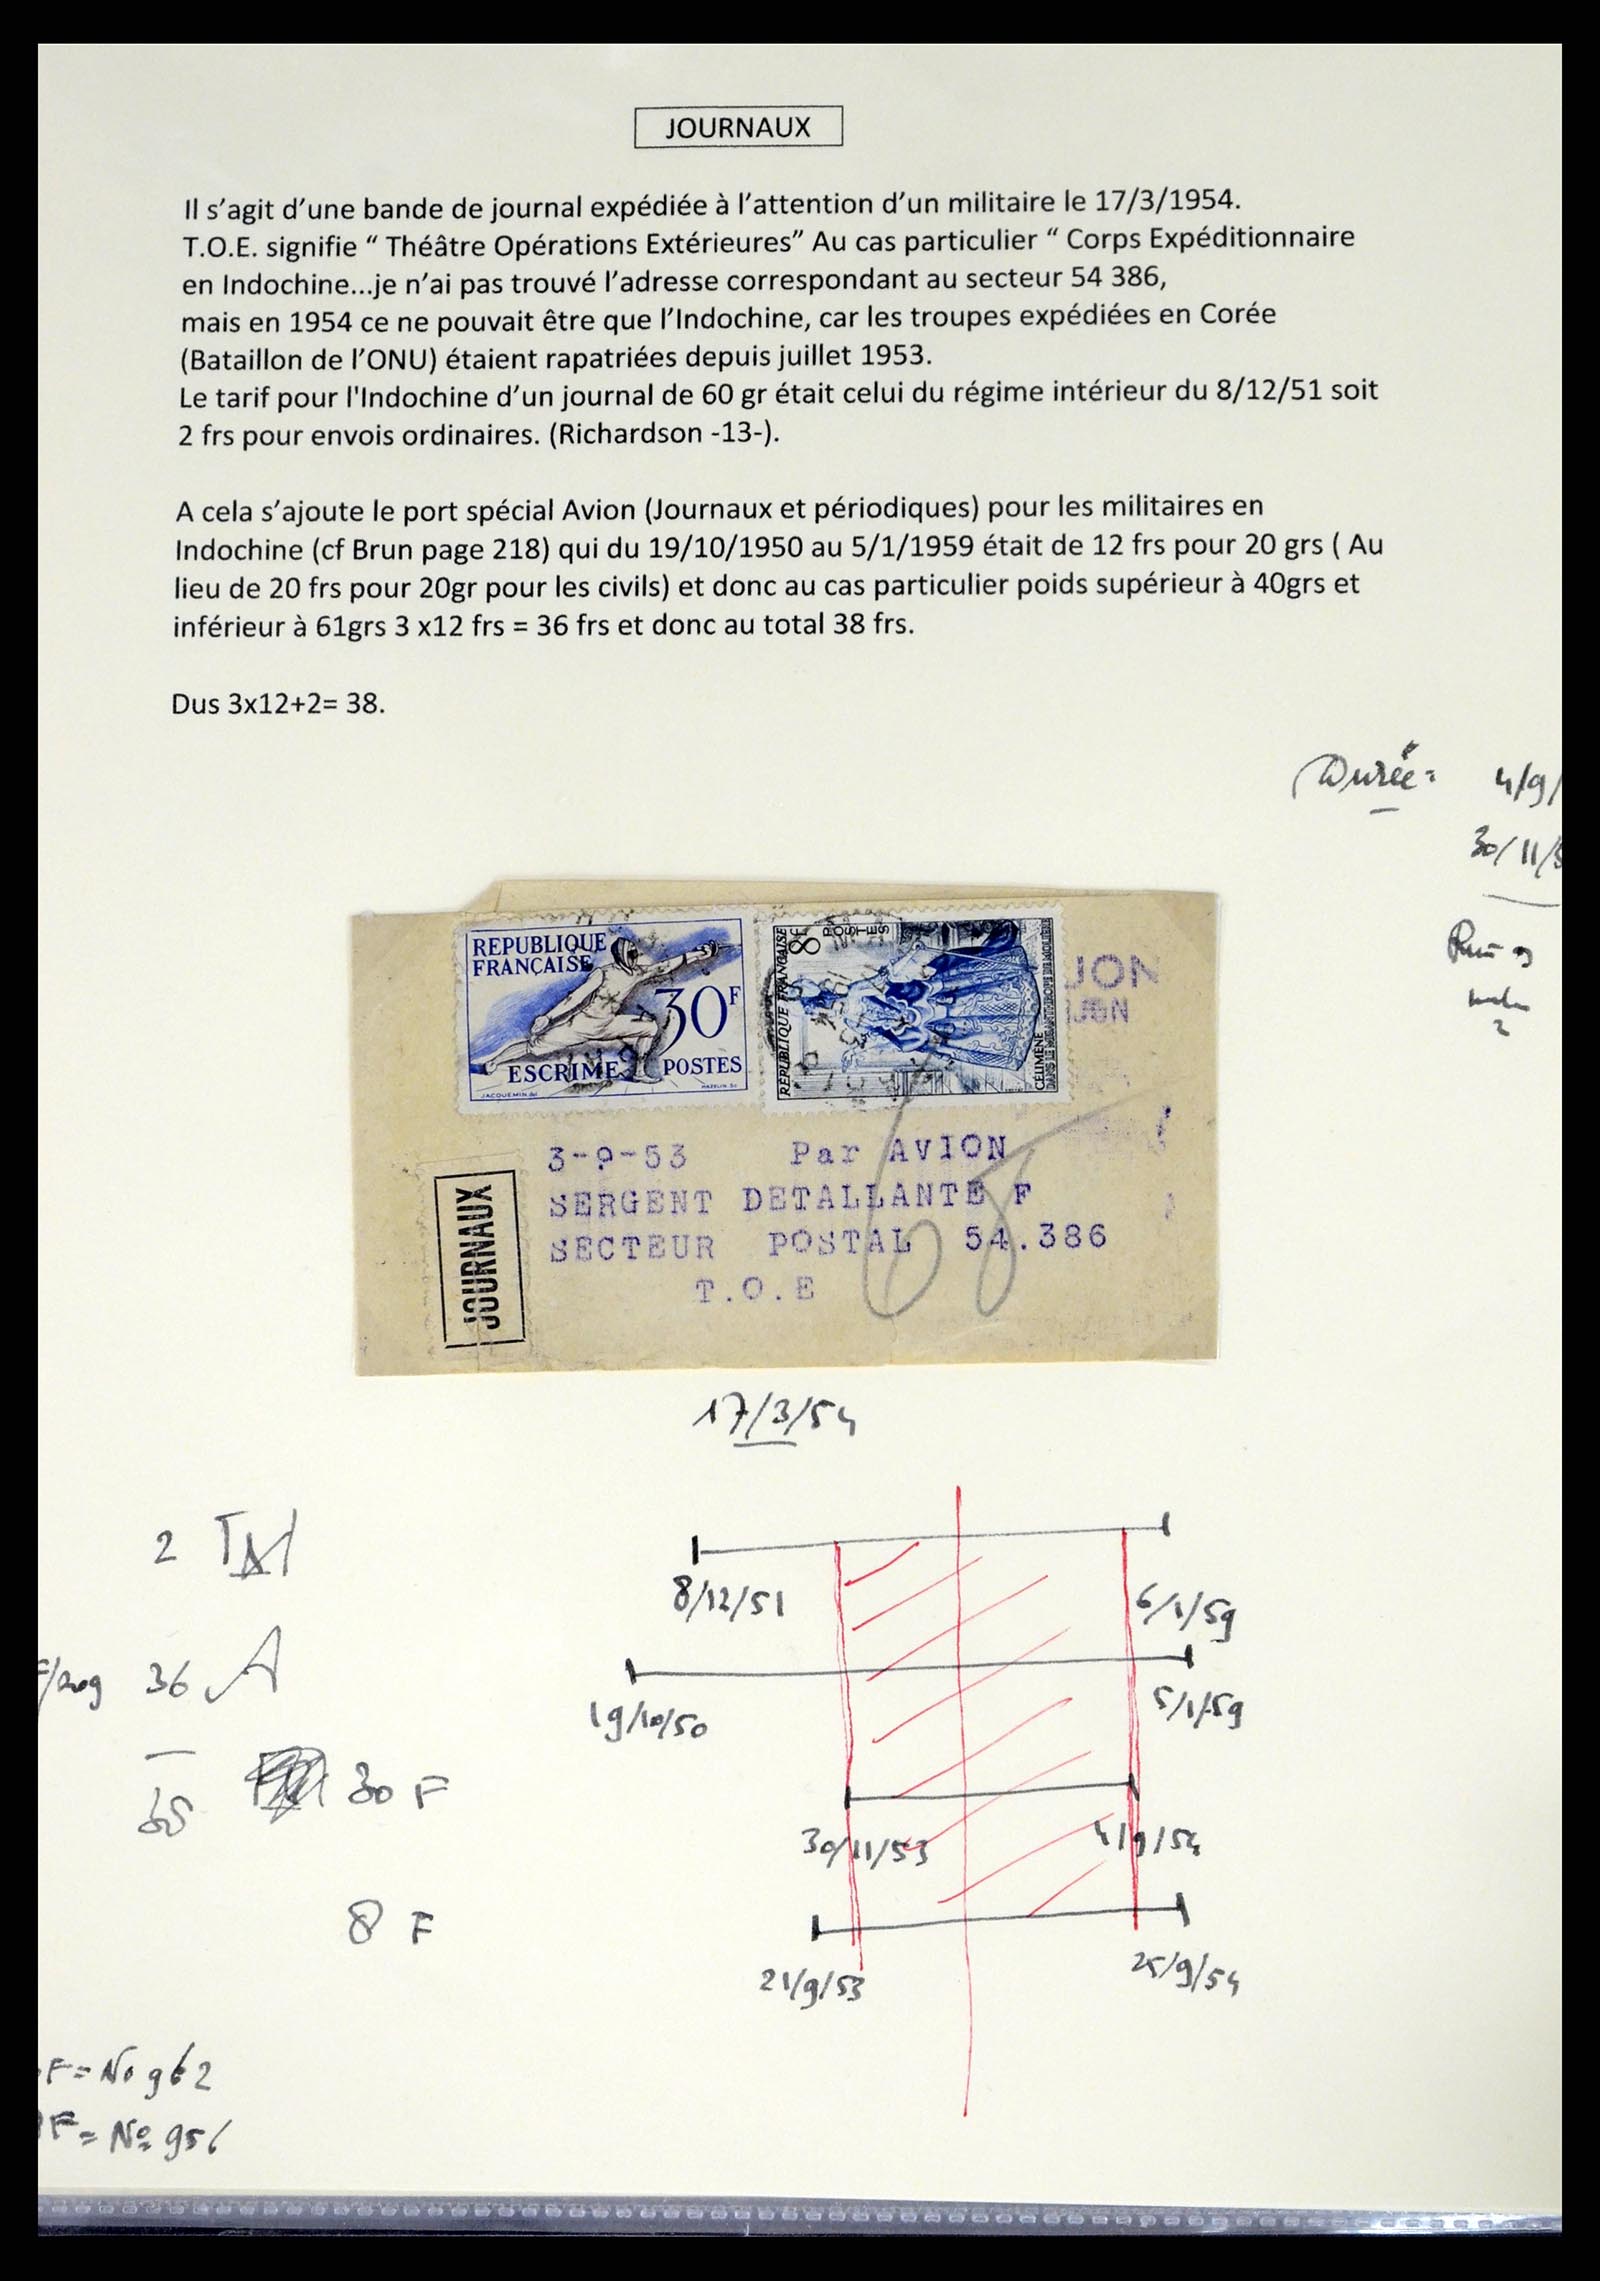 JOURNAUX
Il s’agit d’une bande de journal expédiée à l’attention d’un militaire le 17/3/1954.
T.O.E. signifie “ Théâtre Opérations Extérieures” Au cas particulier “ Corps Expéditionnaire
en Indochine...je n’ai pas trouvé l’adresse correspondant au secteur 54 386,
mais en 1954 ce ne pouvait être que l’Indochine, car les troupes expédiées en Corée
(Bataillon de l’ONU) étaient rapatriées depuis juillet 1953.
Le tarif pour l'Indochine d’un journal de 60 gr était celui du régime intérieur du 8/12/51 soit
2 frs pour envois ordinaires. (Richardson -13-).
A cela s’ajoute le port spécial Avion (Journaux et périodiques) pour les militaires en
Indochine (cf Brun page 218) qui du 19/10/1950 au 5/1/1959 était de 12 frs pour 20 grs ( Au
lieu de 20 frs pour 20gr pour les civils) et donc au cas particulier poids supérieur à 40grs et
inférieur à 61grs 3 x12 frs = 36 frs et donc au total 38 frs.
Dus 3x12+2= 38.
Durée: 4/9/
30/11/5
REPUBLIQUE
FRANÇAISE
30F
ESCRIME POSTES
JACQUEMIN.del
HAZELIN.Sc
RÉPUBLIQUE FRANÇAISE
8F
POSTES
CÉLIMÈNE
DANS LE MISANTHROPE DE MOLIÈRE
ION
3-9-53 Par AVION
SERGENT DETALLANTE F
SECTEUR POSTAL 54.386
T.O.E
JOURNAUX
17/3/54
2
8/12/51 6/1/59
36 A
19/10/50 5/1/59
30 F
30/11/53 4/9/54
8 F
21/9/53 25/9/54
F = No 962
F = No 956